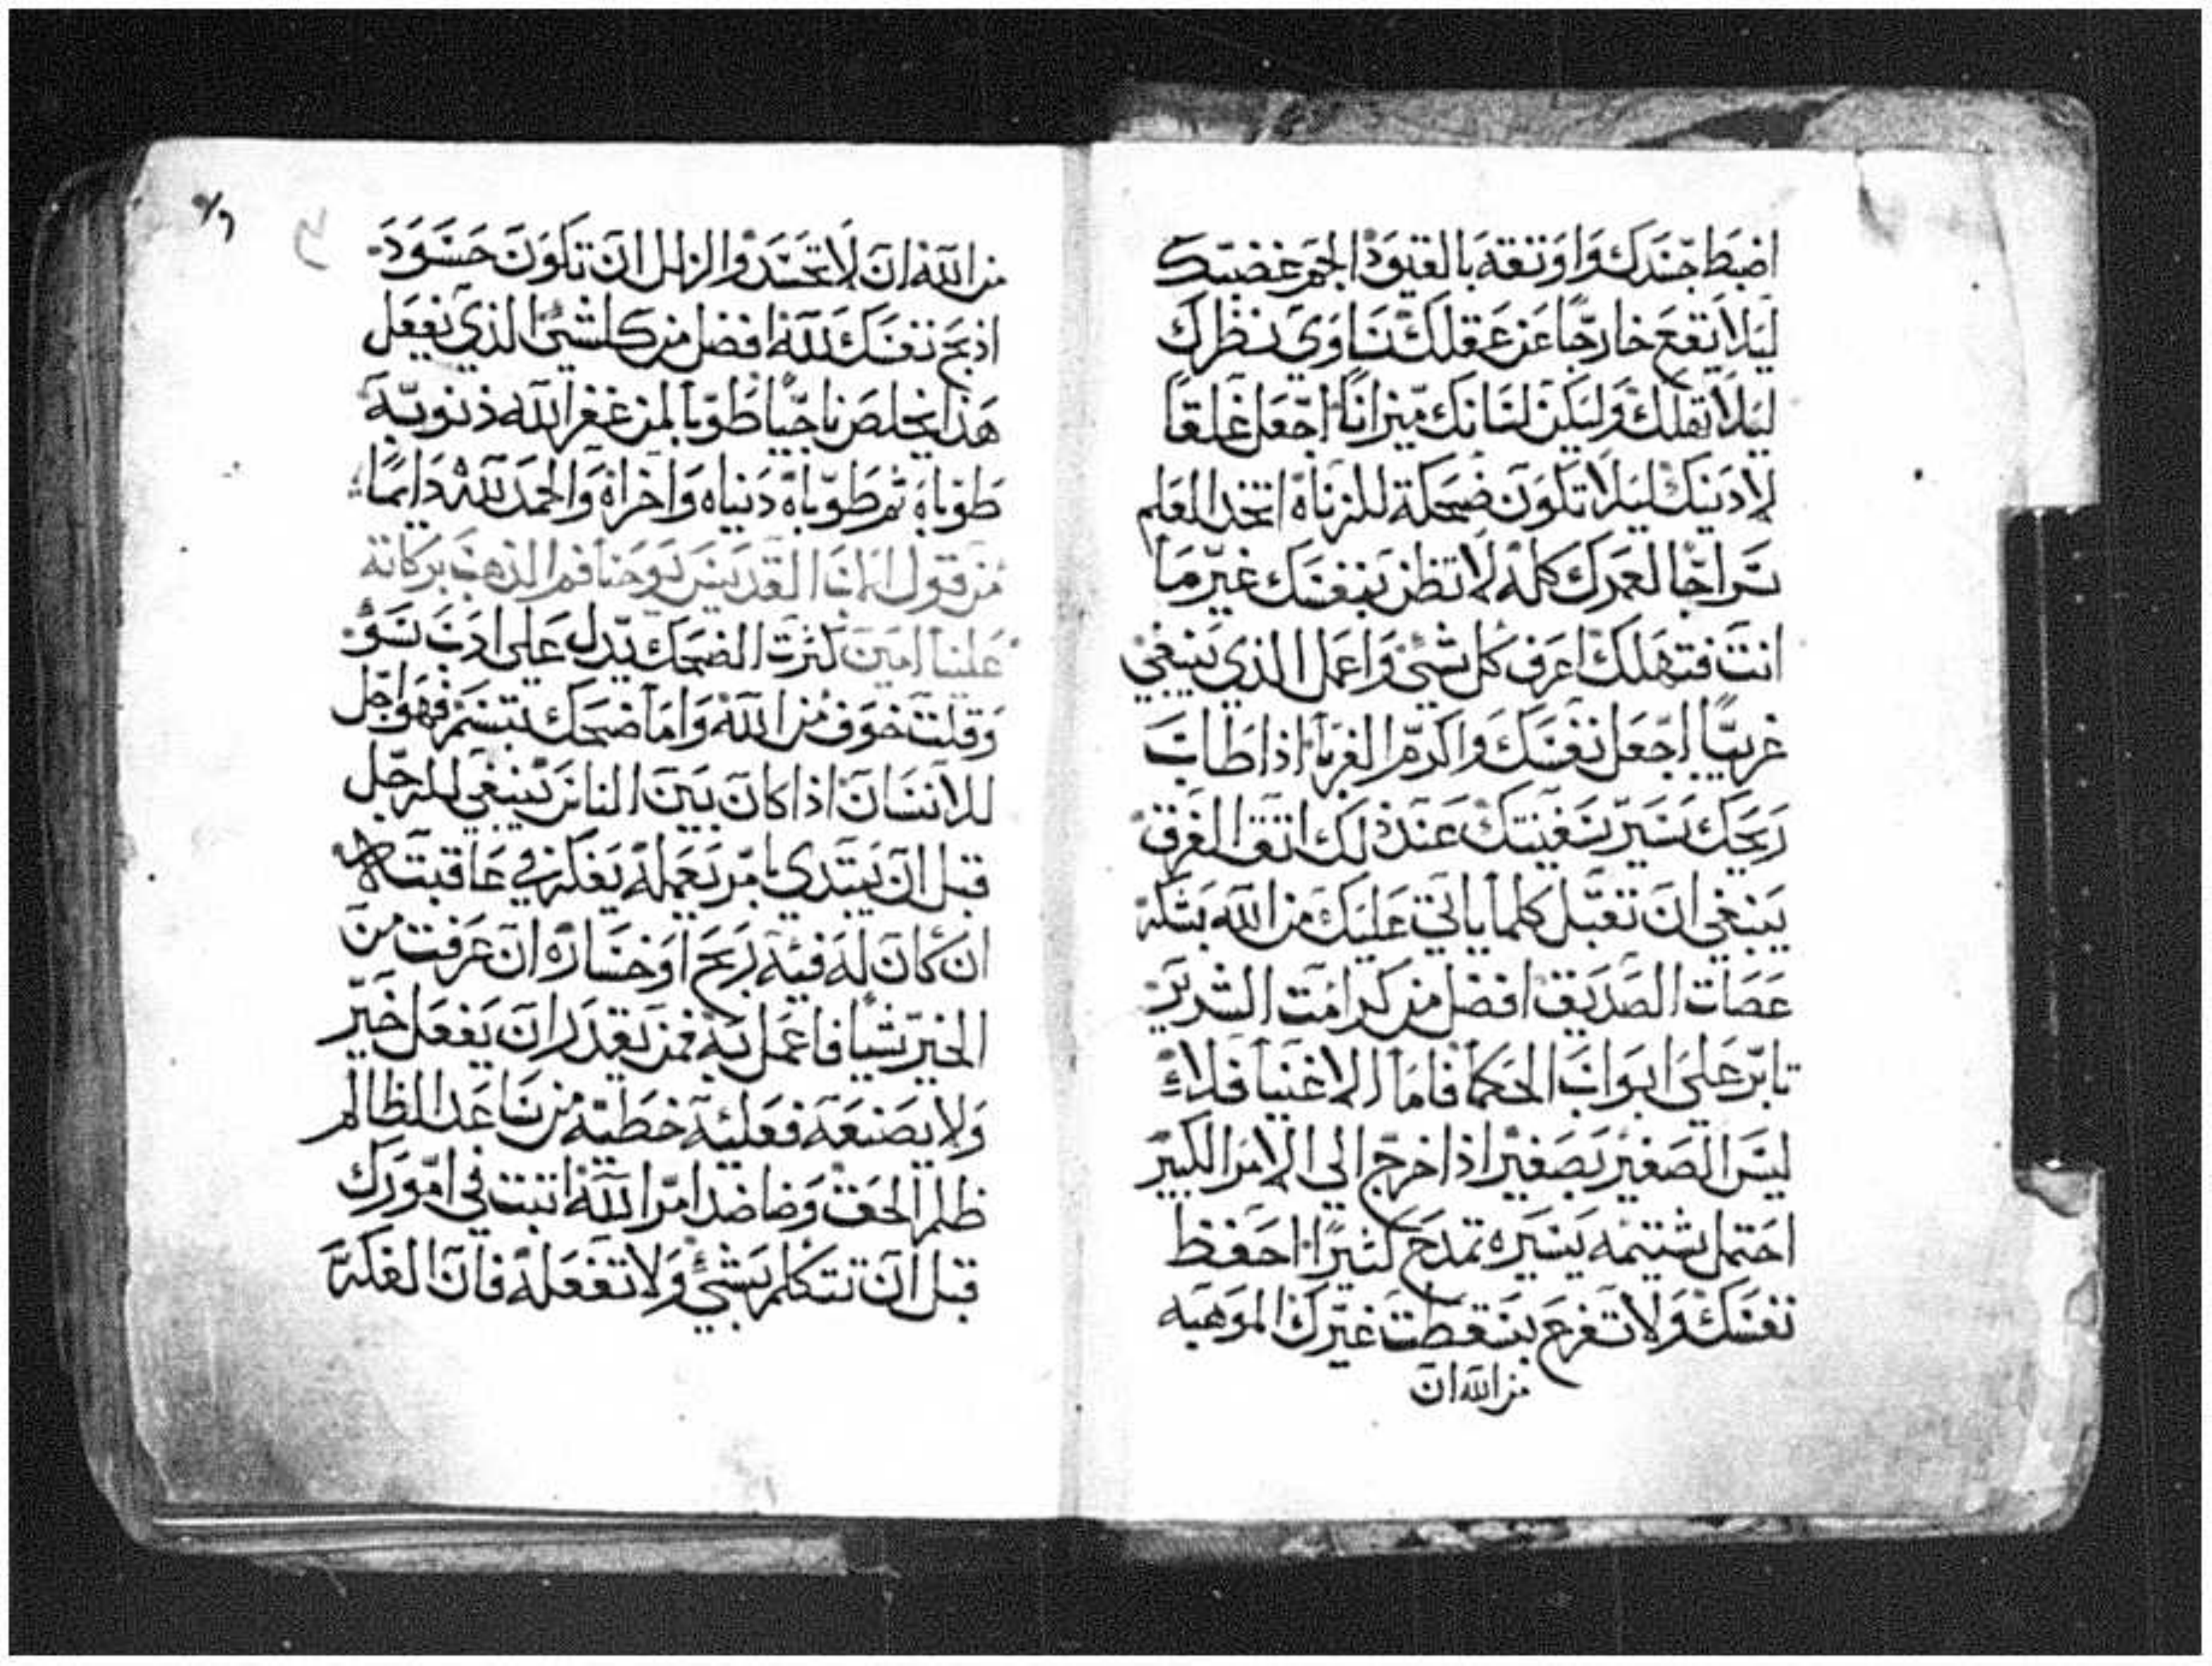 اضبط جسدك واوتقه بالقيود الجم غضبك
ليلا يقع خارجا عن عقلك ساوي نظرك
ليلا تهلك وليكن لسانك ميزانا اجعل غلقا
لادنيك ليلا تكون ضحكة للزناه اتخد العلم
سراجا لعمرك كله لا تظن بنفسك غير ما
انت فتهلك اعرف كل شي واعمل الذي ينبغي
غريبا اجعل نفسك واكرم الغربا اذا طاب
ريحك تسير سفينتك عند ذلك اتق الغرق
ينبغي ان تقبل كلما ياتي عليك من الله بشكر
عصات الصديق افضل من كرامت الشرير
تابر علي ابواب الحكما فاما الاغنيا فلا
ليس الصغير بصغير اذا خرج الي الامر الكبير
احتمل شتيمه يسيره تمدح كثيرا احفظ
نفسك ولا تفرح بسقطت غيرك الموهبه
من الله ان
من الله ان لا تحسد والزلل ان تكون حسود
ادبح نفسك لله افضل من كل شي الذي تفعل
هذا يخلص ناجيا طوبا لمن غفر الله ذنوبه
طوباه ثم طوباه دنياه واخراه والحمد لله دايما
من قول الاب القديس يوحنا فم الذهب بركاته
علينا امين كثرت الضحك تدل علي ادب سو
وقلت خوف من الله واما ضحك بتبسم فهو اجل
للانسان اذا كان بين الناس ينبغي للرجل
قبل ان يبتدي بامر يعمله يفكر في عاقبته
ان كان له فيه ربح او خساره ان عرفت من
الخير شيا فاعمل به فمن يقدر ان يفعل خير
ولا يصنعه فعليه خطيه من ساعد الظالم
ظلم الحق وضاضد امر الله اتبت في امورك
قبل ان تتكلم بشي ولا تفعله فان الفكر